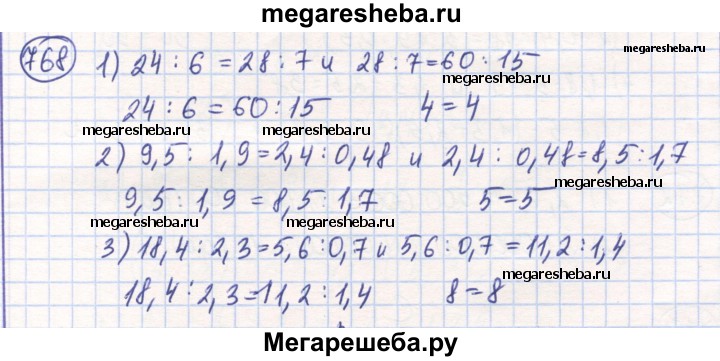 megaresheba.ru
768 1) 24 : 6 = 28 : 7 и 28 : 7 = 60 : 15
megaresheba.ru
megaresheba.ru
24 : 6 = 60 : 15 4 = 4
megaresheba.ru megaresheba.ru
2) 9,5 : 1,9 = 2,4 : 0,48 и 2,4 : 0,48 = 8,5 : 1,7
megaresheba.ru
9,5 : 1,9 = 8,5 : 1,7 5 = 5
megaresheba.ru megaresheba.ru
3) 18,4 : 2,3 = 5,6 : 0,7 и 5,6 : 0,7 = 11,2 : 1,4
megaresheba.ru
18,4 : 2,3 = 11,2 : 1,4 8 = 8
Мегарешеба.ру